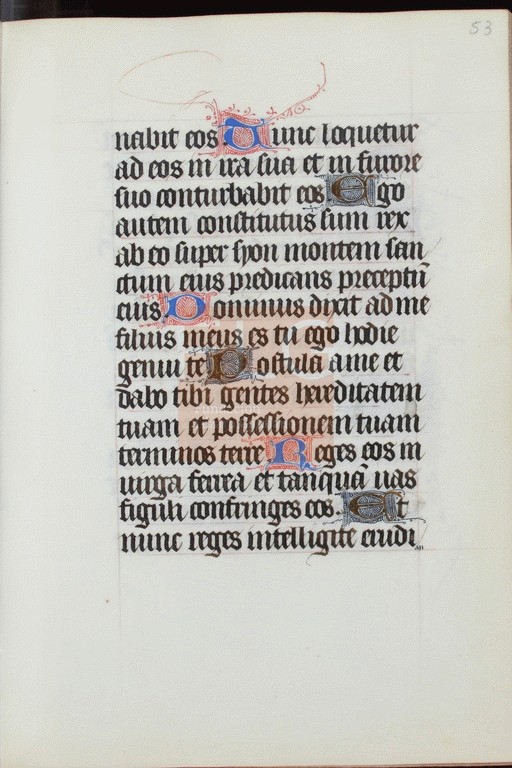 53
nabit eos Tunc loquetur
ad eos in ira sua et in furore
suo conturbabit eos Ego
autem constitutus sum rex
ab eo super syon montem san
ctum eius predicans preceptū
eius Dominus dixit ad me
filius meus es tu ego hodie
genui te Postula a me et
dabo tibi gentes hereditatem
tuam et possessionem tuam
terminos terre Reges eos in
uirga ferrea et tanquā uas
figuli confringes eos. Et
nunc reges intelligite erudi